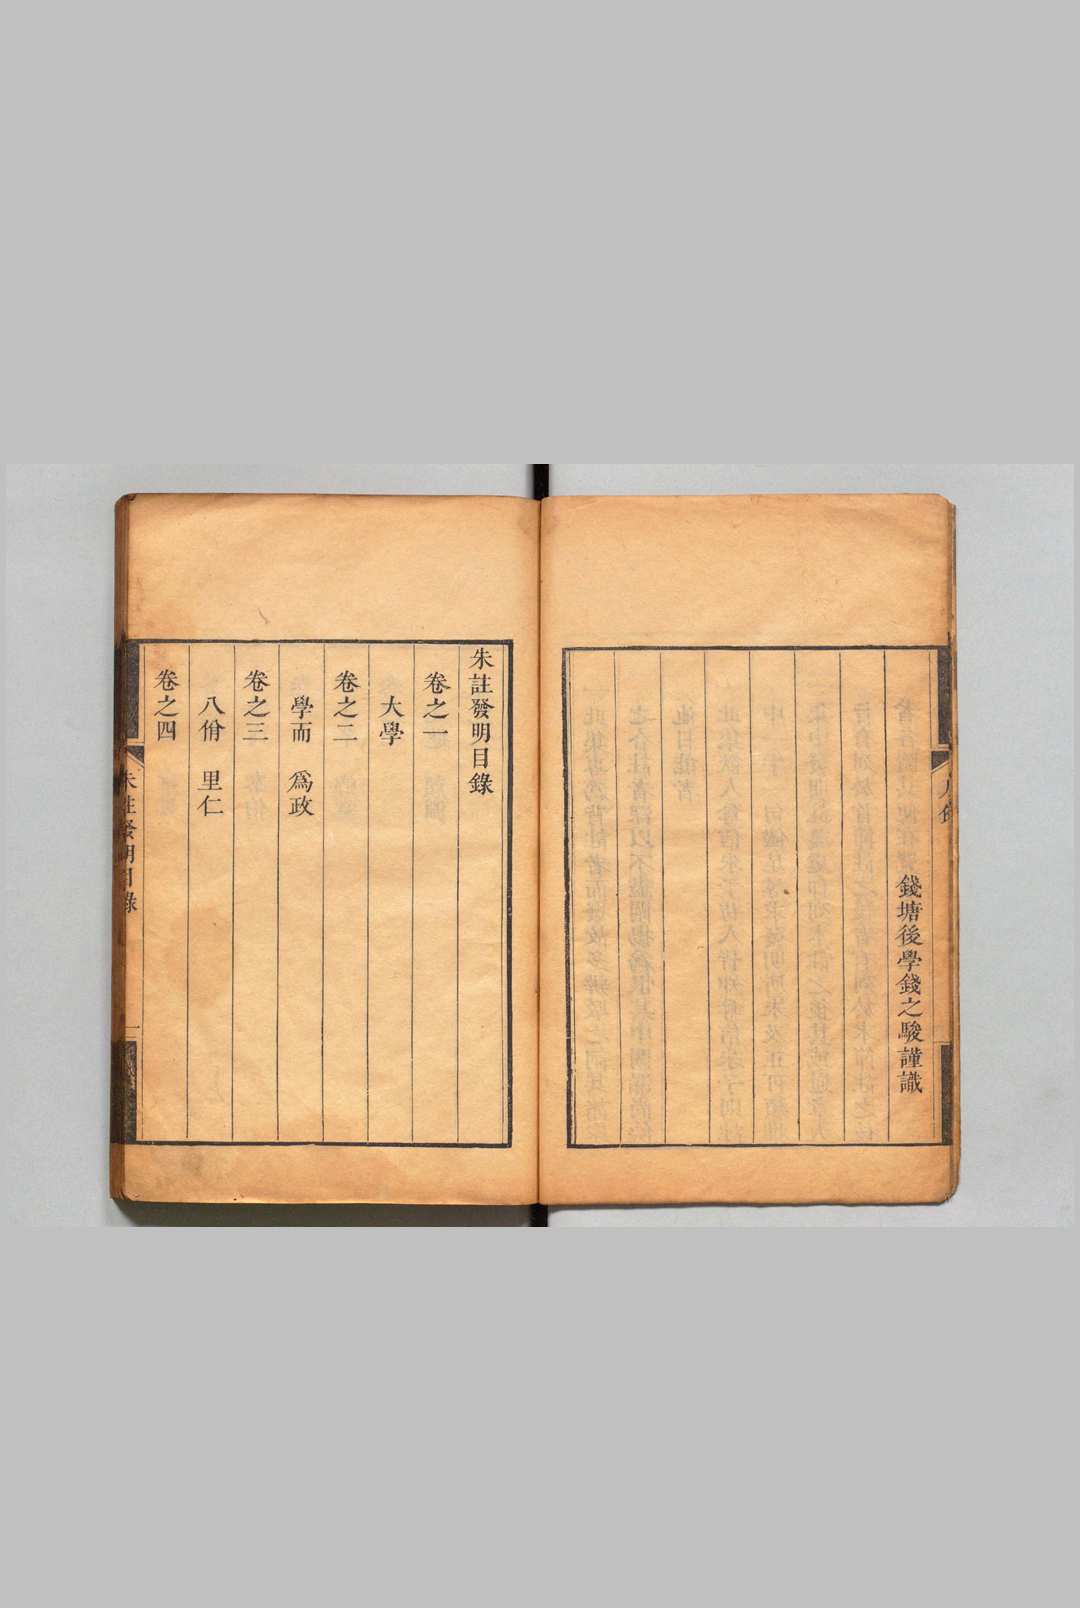 錢塘後學錢之駿謹識
朱註發明目錄
卷之一
大學
卷之二
學而 爲政
卷之三
八佾 里仁
卷之四
朱註發明目錄 一